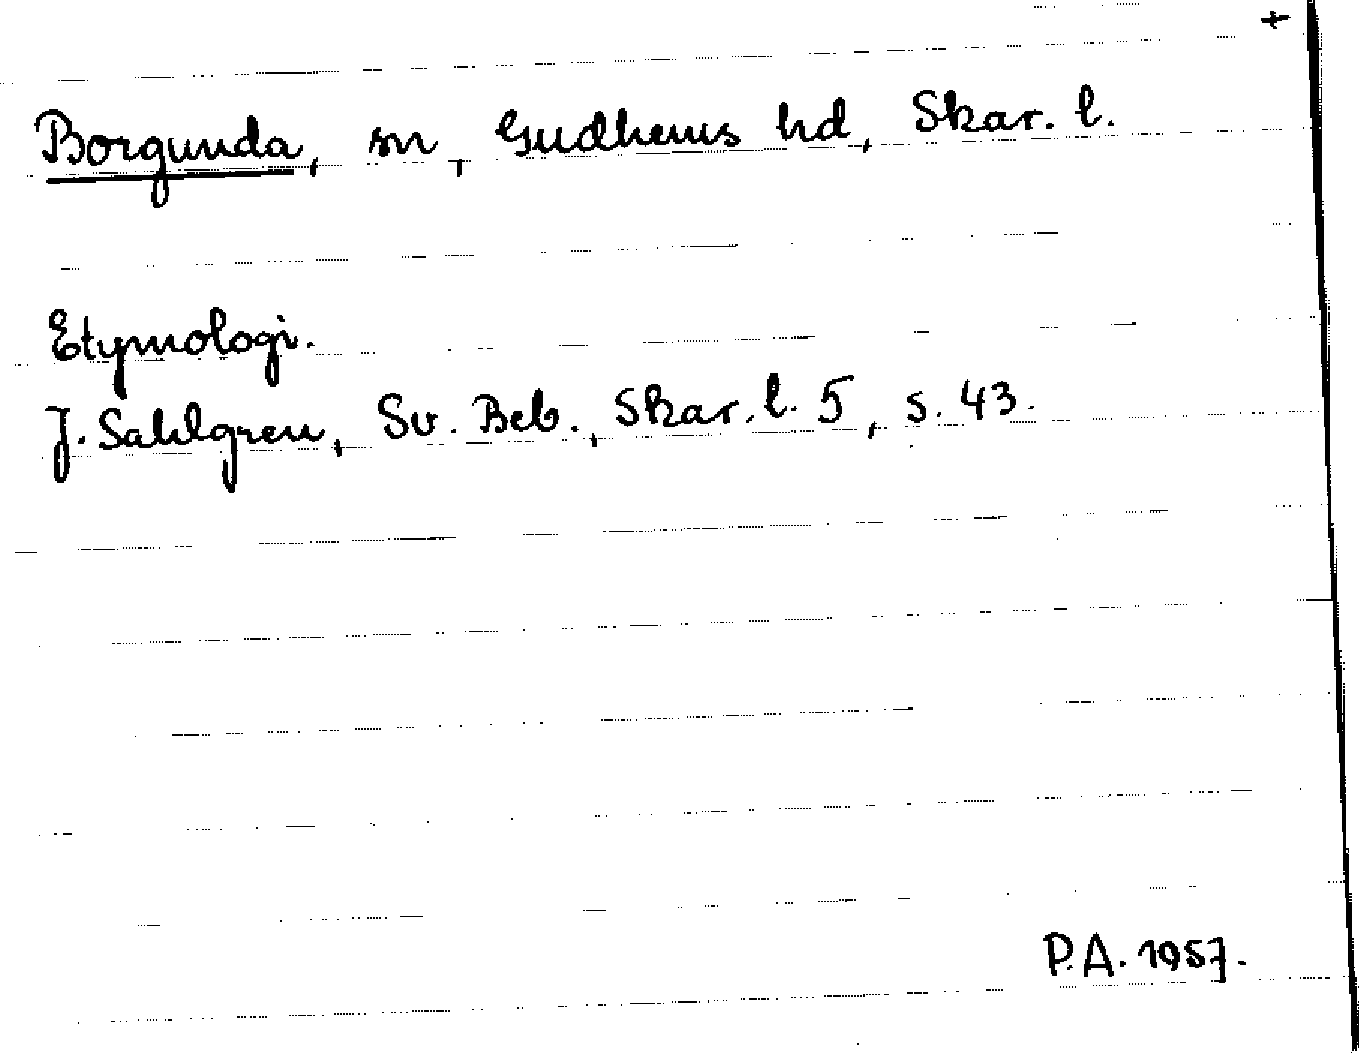 +
Borgunda, sn, Gudhems hd, Skar. l.
Etymologi.
J. Sahlgren, Sv. Beb., Skar. l. 5, s. 43.
P.A. 1957.